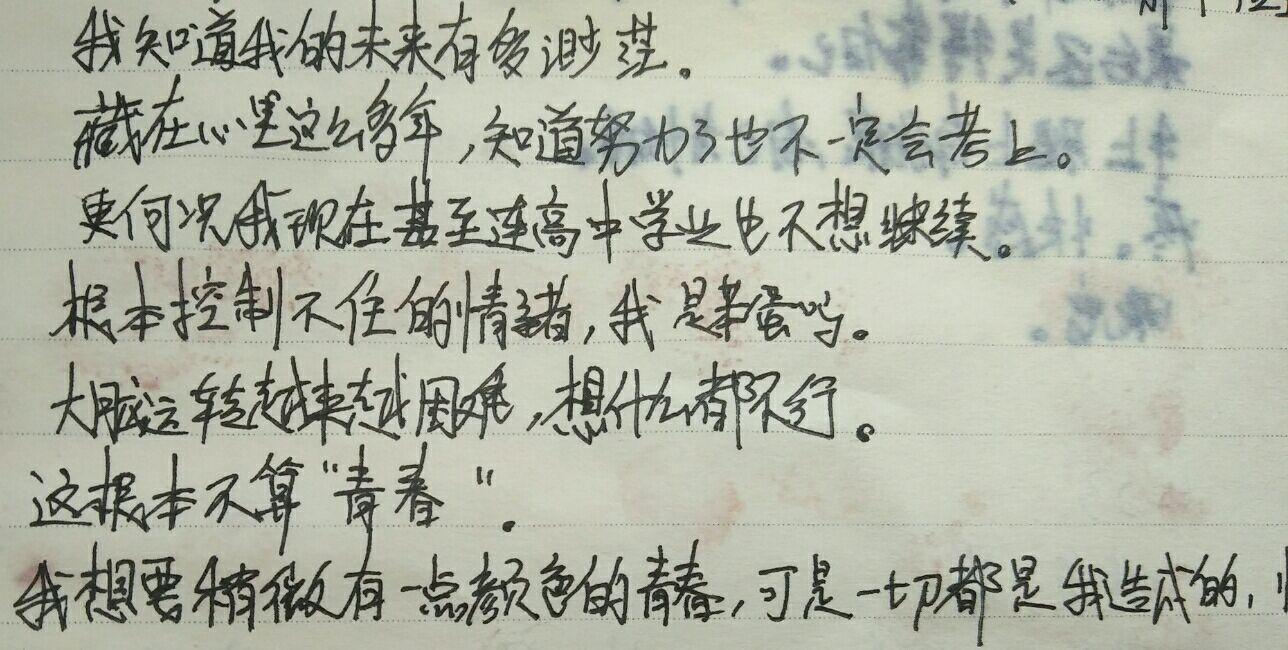 我知道我的未来有多渺茫。
藏在心里这么多年，知道努力了也不一定会考上。
更何况我现在甚至连高中学业也不想继续。
根本控制不住自的情绪，我是笨蛋吗。
大脑运转越来越困难，想什么都不行。
这根本不算“青春”。
我想要稍微有一点颜色的青春，可是一切都是我造成的，